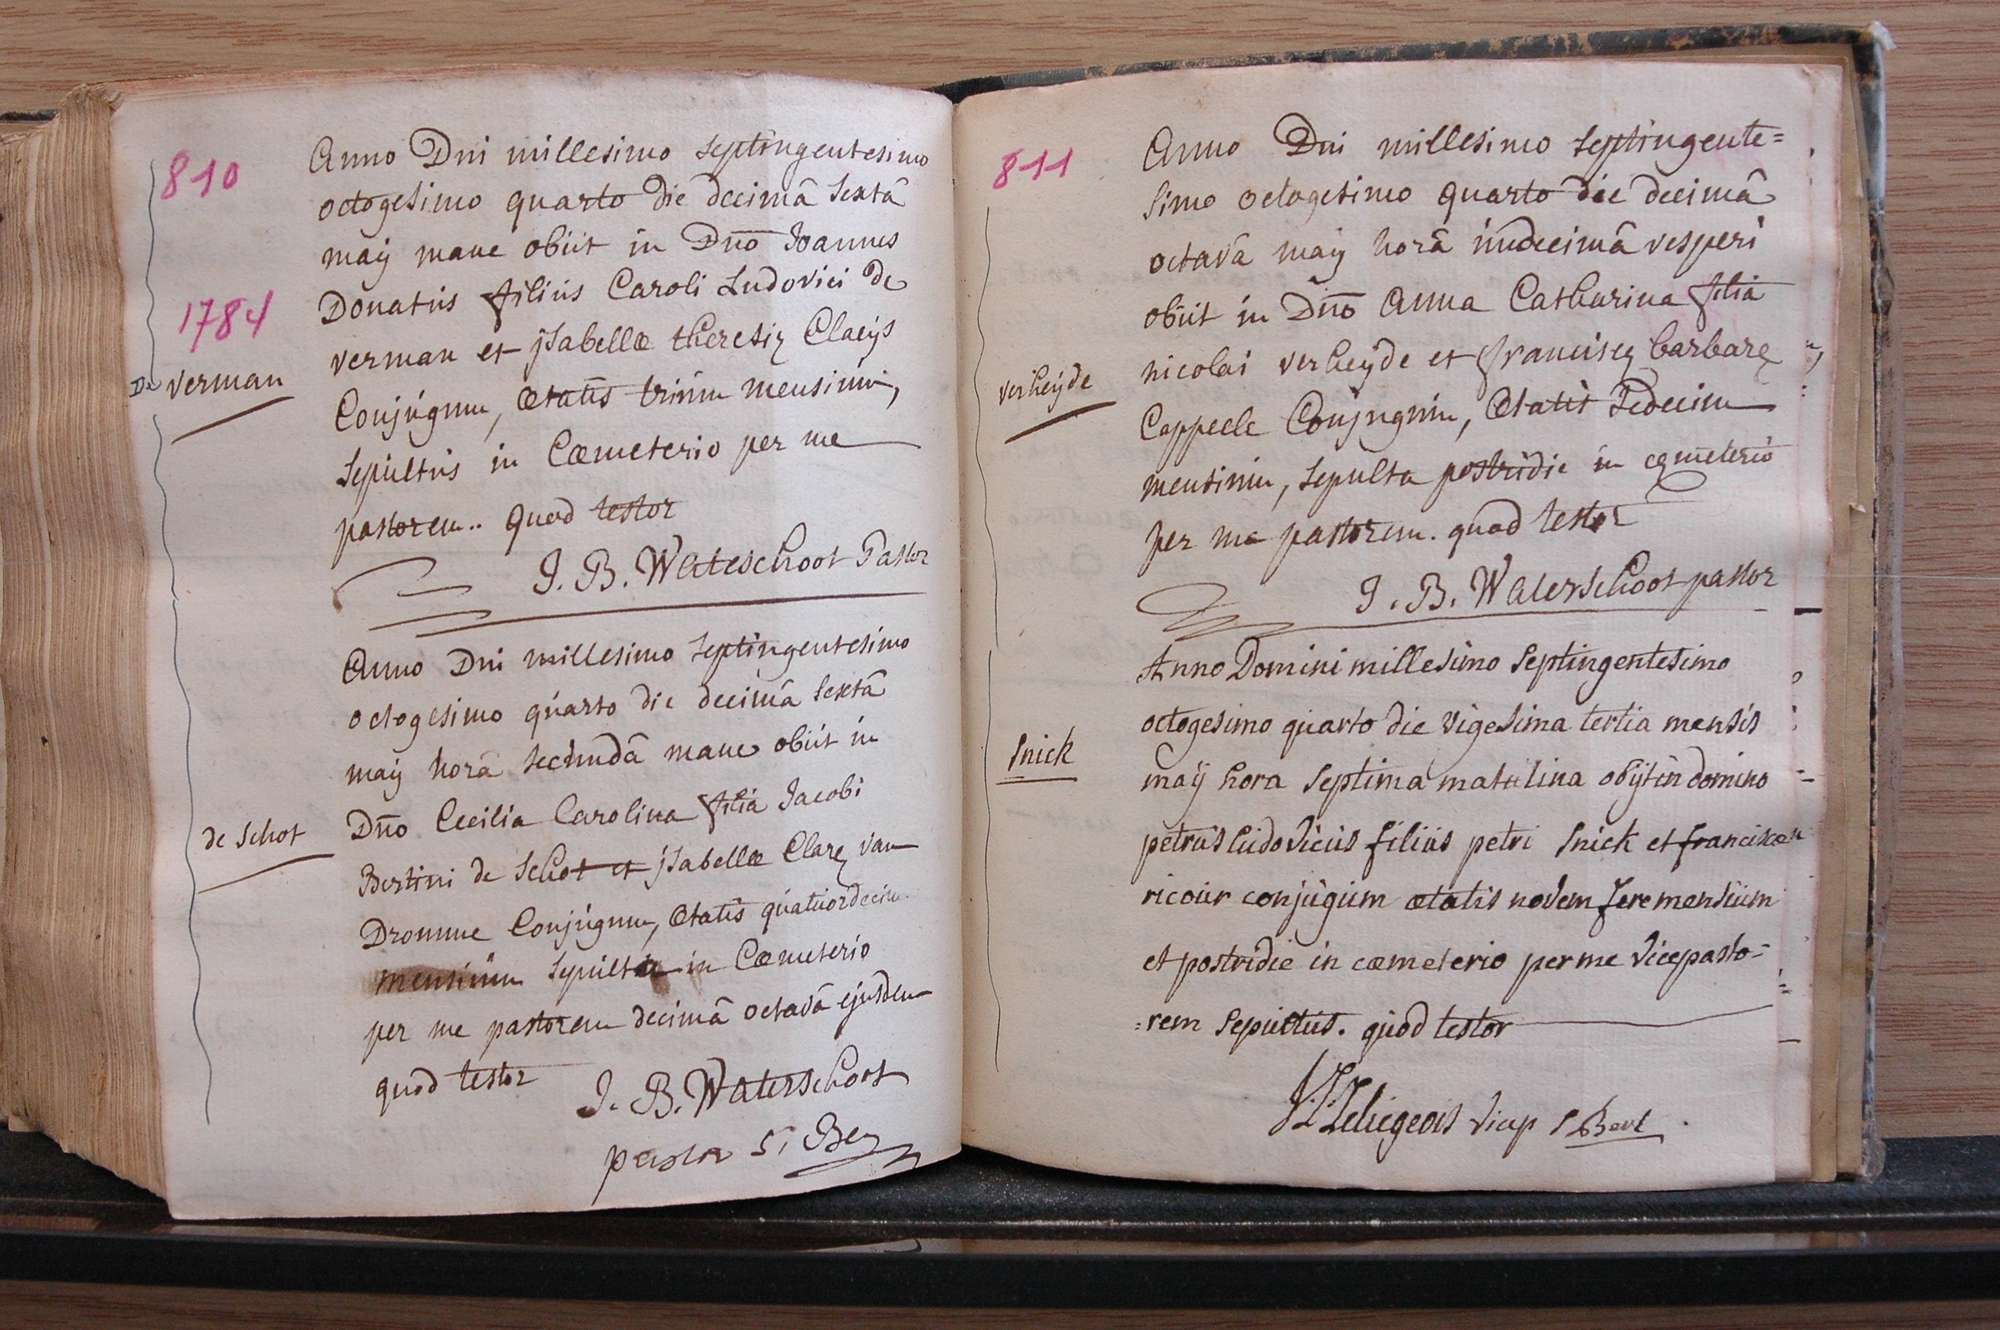 810
1784
De Verman
Anno Dni millesimo septingentesimo
octogesimo quarto die decimâ sextâ
maÿ mane obiit in Dno Joannes
Donatus filius Caroli Ludovici de
verman et jsabellæ theresię Claeÿs
Conjúgum, ætatis trium mensium,
sepultus in Cœmeterio per me
pastorem.. quod testor
J. B. Wateschoot Pastor
de Schot
Anno Dni millesimo septingentesimo
octogesimo quarto die decimâ sextâ
maÿ horâ secundâ mane obiit in
Dno Cecilia Carolina filia Jacobi
Bertini de Schot et jsabellæ Clarę van
Dromme Conjúgum, ætatis quatuordecim
mensium sepulta in Cœmeterio
per me pastorem decimâ octavâ ejusdem
quod testor J. B. Waterschoot
pastor St Ber
811
verheÿde
Anno Dni millesimo septingente=
simo octogesimo quarto die decimâ
octavâ maÿ horâ undecimâ vesperi
obiit in Dno Anna Catharina filia
nicolai verheÿde et franciscę barbarę
Cappeele Conjugum, ætatis sedecim
mensium, sepulta postridie in cęmeterio
per me pastorem. quod testor
J. B. Waterschoot pastor
Snick
Anno Domini millesimo septingentesimo
octogesimo quarto die vigesima tertia mensis
maÿ hora septima matutina obÿt in domino
petrus ludovicus filius petri Snick et franciscæ
ricour conjúgum ætatis novem fere mensium
et postridie in cœmeterio per me vicepasto=
=rem sepultus. quod testor
Leliegeois vicep S Bert